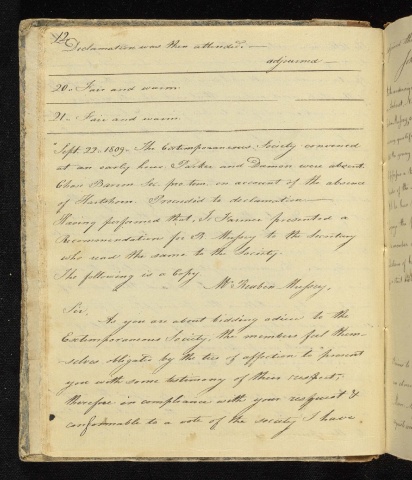 12
Declamation was then attended.
adjourned
20 - Fair and warm
21 - Fair and warm
Sept. 22 - 1809 - The Extemporaneous Society convened
at an early hour. Parker and Demon were absent.
Chose Bacon Sec. pro. tem. on account of the absence
of Hartshorn. Proceeded to declamation
Having performed that, J. presented a
Recommendation for R. Mussey to the Secretary
who read the same to the Society.
The following is a Copy.
Mr. Reuben Mussey,
Sir,
As you are about bidding adieu to the
Extemporaneous Society, the members feel them-
selves obligated by the ties of affection to present
you with some testimony of their respect;
therefore in compliance with your request &
conformable to a vote of the society I have